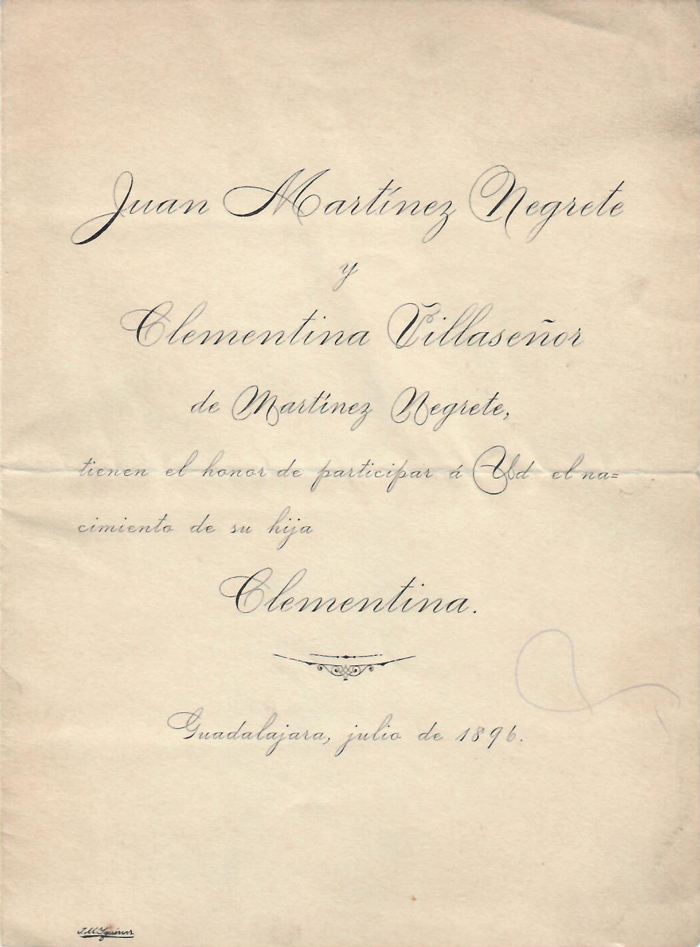 Juan Martínez Negrete
y
Clementina Villaseñor
de Martínez Negrete,
tienen el honor de participar á Ud el na=
cimiento de su hija
Clementina.
Guadalajara, julio de 1896.